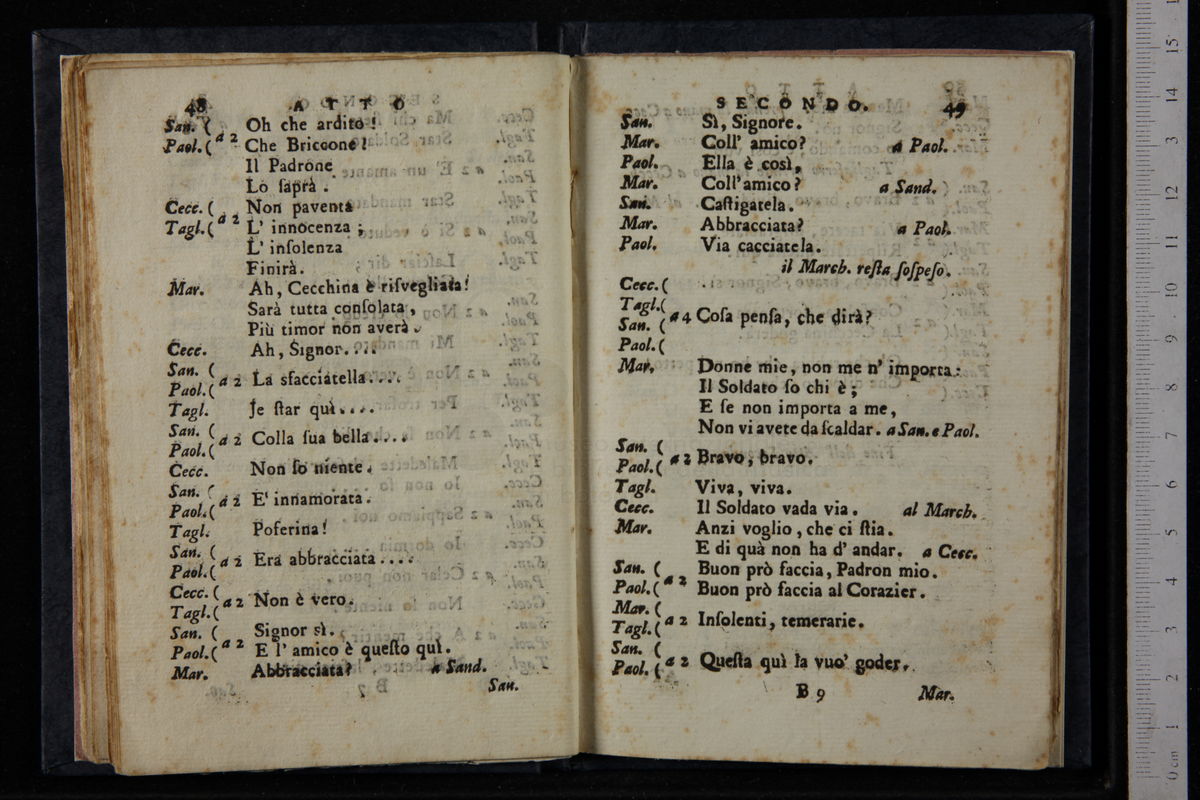 48 ATTO
San. ( Oh che ardito!
Paol. ( a 2 Che Briccone!
Il Padrone
Lo ſaprà.
Cecc. ( Non paventa
Tagl. ( a 2 L' innocenza;
L' inſolenza
Finirà.
Mar. Ah, Cecchina è riſvegliata!
Sarà tutta conſolata,
Più timor non averà.
Cecc. Ah, Signor....
San. (
Paol. ( a 2 La sfacciatella....
Tagl. Je ſtar quì....
San. (
Paol. ( a 2 Colla ſua bella....
Cecc. Non ſo niente.
San. (
Paol. ( a 2 E' innamorata.
Tagl. Poferina!
San. (
Paol. ( a 2 Era abbracciata....
Cecc. (
Tagl. ( a 2 Non è vero.
San. ( Signor sì.
Paol. ( a 2 E l' amico è queſto quì.
Mar. Abbracciata? a Sand.
San.
SECONDO. 49
San. Sì, Signore.
Mar. Coll' amico? a Paol.
Paol. Ella è così,
Mar. Coll'amico? a Sand.
San. Caſtigatela.
Mar. Abbracciata? a Paol.
Paol. Via cacciatela.
il March. reſta ſoſpeſo.
Cecc. (
Tagl. (
San. ( a 4 Coſa penſa, che dirà?
Paol. (
Mar. Donne mie, non me n' importa:
Il Soldato ſo chi è;
E ſe non importa a me,
Non vi avete da ſcaldar. a San. e Paol.
San. (
Paol. ( a 2 Bravo, bravo.
Tagl. Viva, viva.
Cecc. Il Soldato vada via. al March.
Mar. Anzi voglio, che ci ſtia.
E di quà non ha d' andar. a Cecc.
San. ( Buon prò faccia, Padron mio.
Paol. ( a 2 Buon prò faccia al Corazier.
Mar. (
Tagl. ( a 2 Inſolenti, temerarie.
San. (
Paol. ( a 2 Queſta quì la vuo' goder.
B 9 Mar.